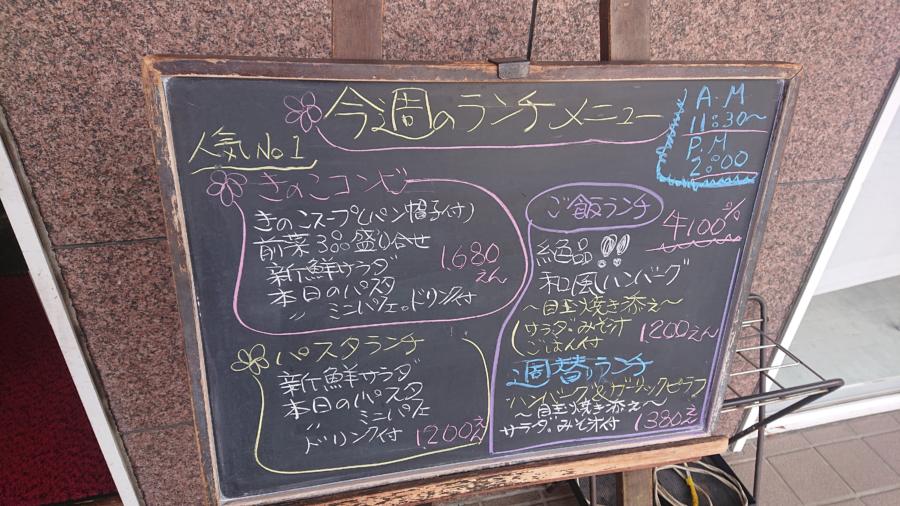 今週のランチメニュー
A.M
11:30〜
P.M
2:00
人気No1
きのこコンビ
きのこスープ(パン帽子付)
前菜3品盛り合せ
新鮮サラダ
本日のパスタ
〃 ミニパフェ。ドリンク付
1680
えん
パスタランチ
新鮮サラダ
本日のパスタ
〃 ミニパフェ
ドリンク付
1200えん
ご飯ランチ
牛100%
絶品!!
和風ハンバーグ
〜目玉焼き添え〜
サラダ・みそ汁
ごはん付
1200えん
週替ランチ
ハンバーグ&ガーリックピラフ
〜目玉焼き添え〜
サラダ・みそ汁付
1380えん